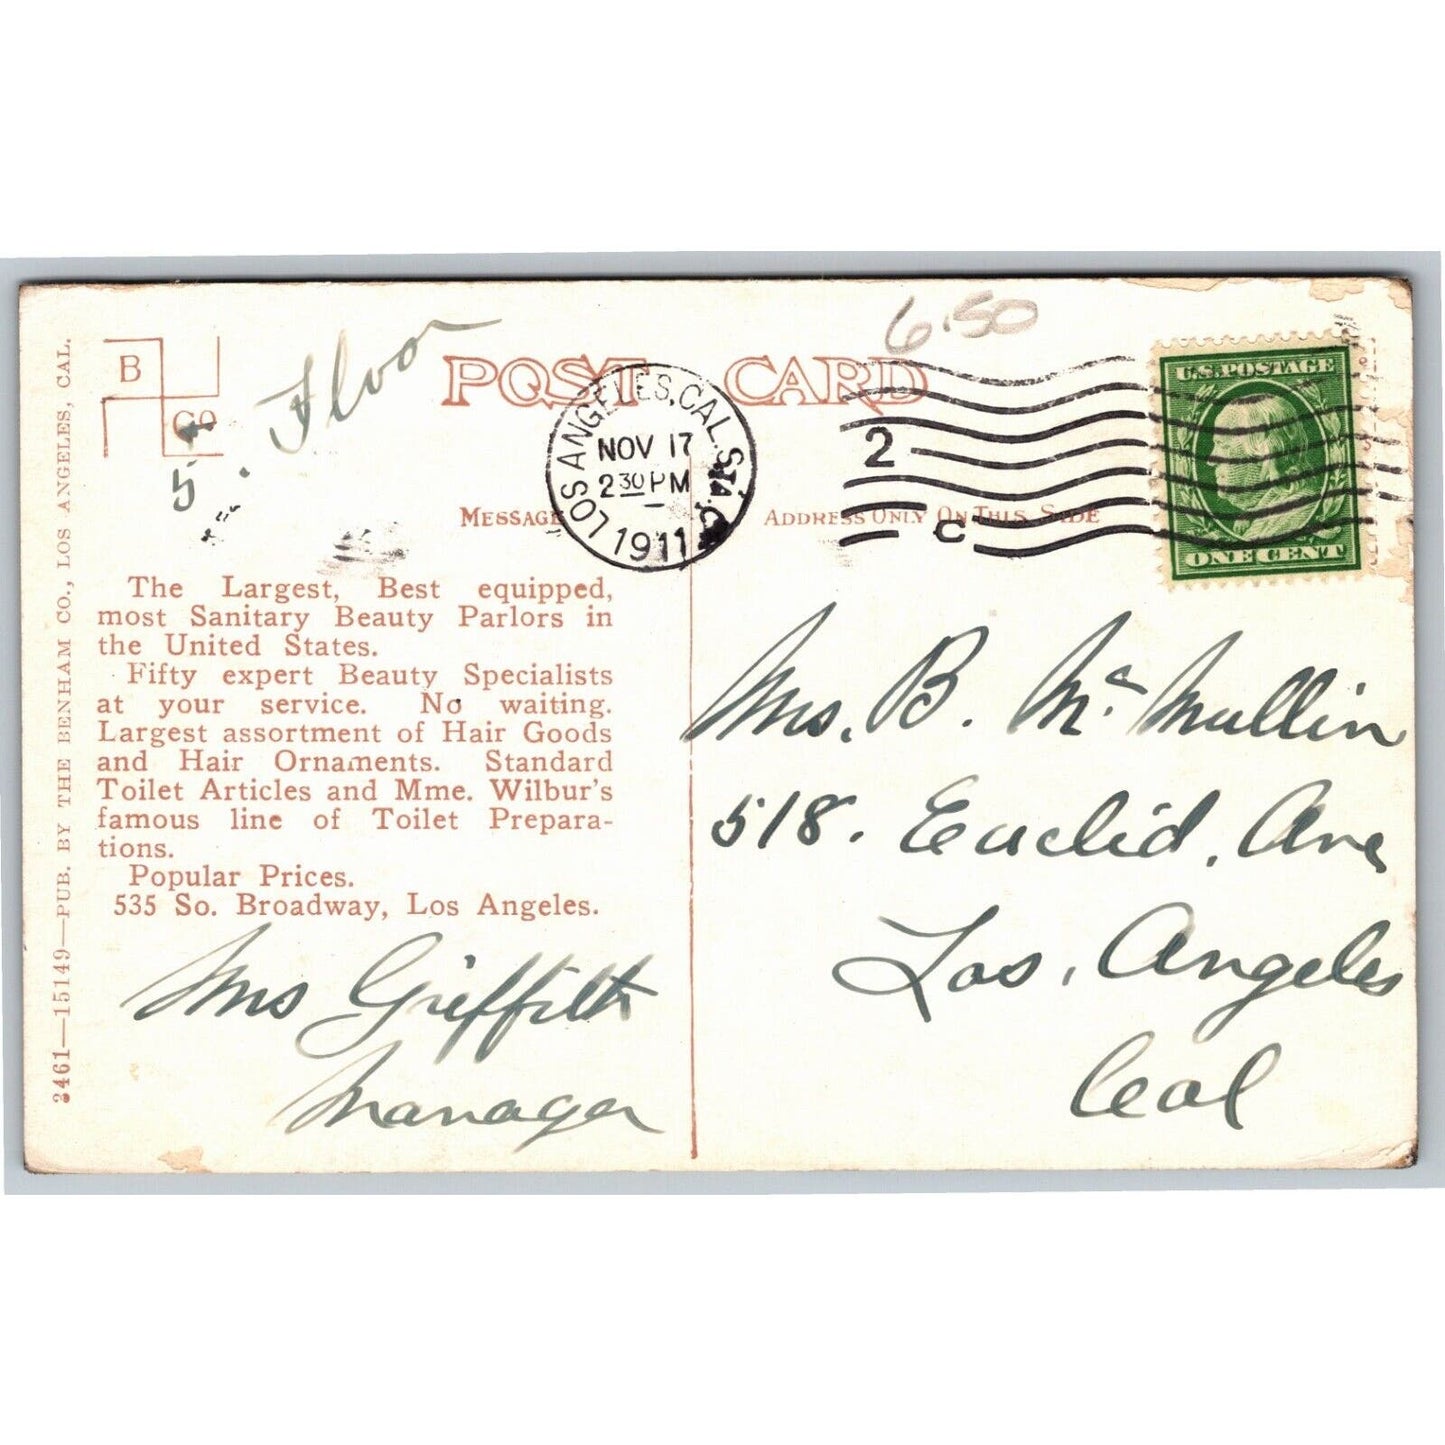 6.50
B
CO
5th Floor
POST CARD
MESSAGE
ADDRESS ONLY ON THIS SIDE
LOS ANGELES, CAL. STA. C
NOV 17
2 30 PM
1911
2
C
U.S. POSTAGE
ONE CENT
The Largest, Best equipped,
most Sanitary Beauty Parlors in
the United States.
Fifty expert Beauty Specialists
at your service. No waiting.
Largest assortment of Hair Goods
and Hair Ornaments. Standard
Toilet Articles and Mme. Wilbur's
famous line of Toilet Prepara-
tions.
Popular Prices.
535 So. Broadway, Los Angeles.
Mrs Griffith
Manager
Mrs. B. Mc Mullin
518. Euclid. Ave
Los. Angeles
Cal
2461—15149—PUB. BY THE BENHAM CO., LOS ANGELES, CAL.